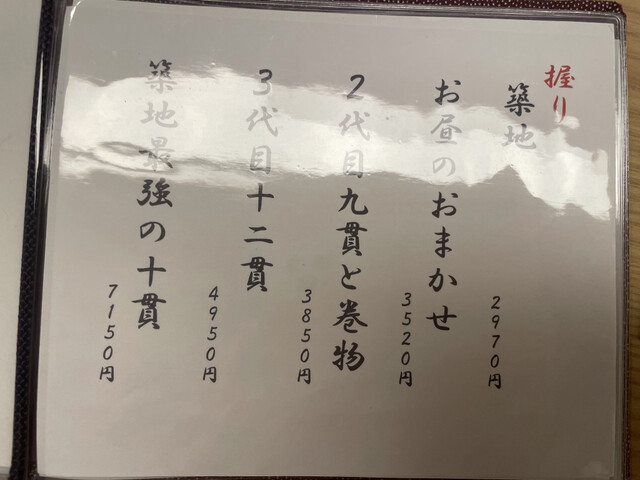 握り
築地
2970円
お昼のおまかせ
3520円
2代目九貫と巻物
3850円
3代目十二貫
4950円
築地最強の十貫
7150円